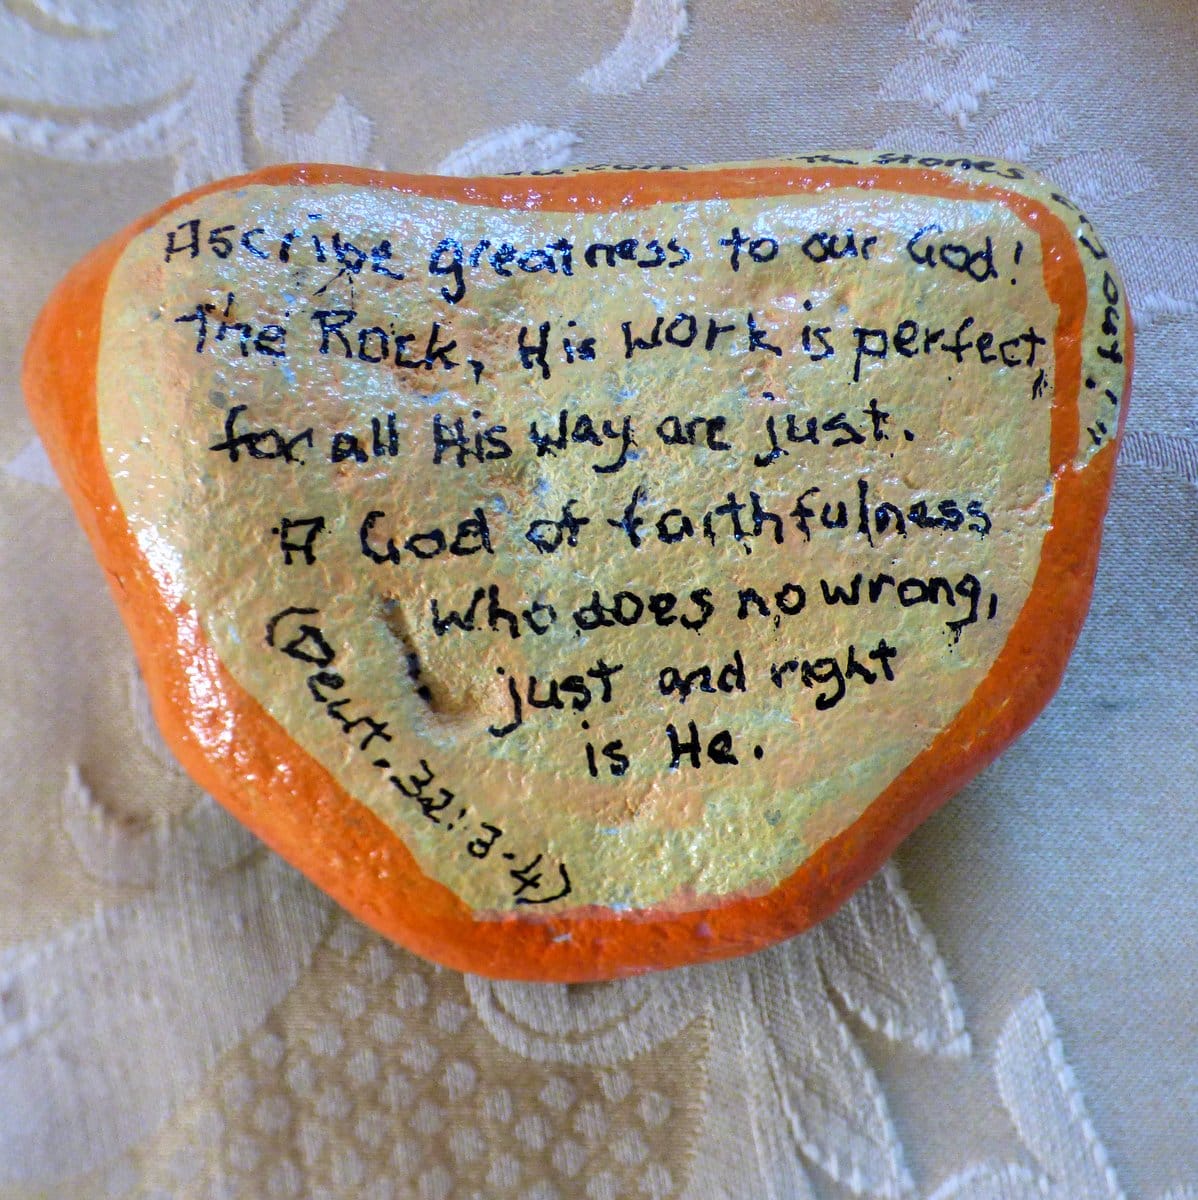 Ascribe greatness to our God!
The Rock, His work is perfect,
for all His way are just.
A God of faithfulness
who does no wrong,
just and right
is He.
(Deut. 32:3-4)
the stones
cry out!"